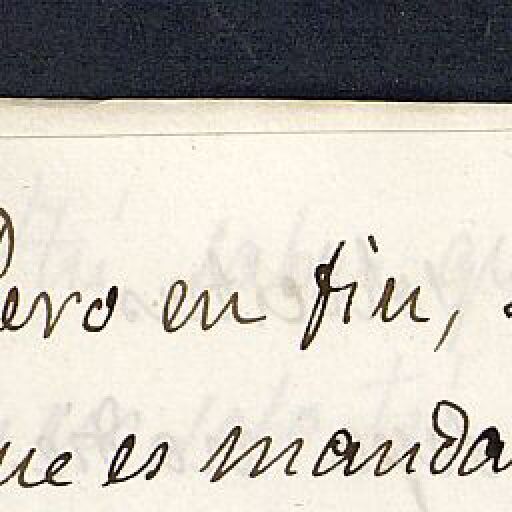 Pero en fin,
ue es manda